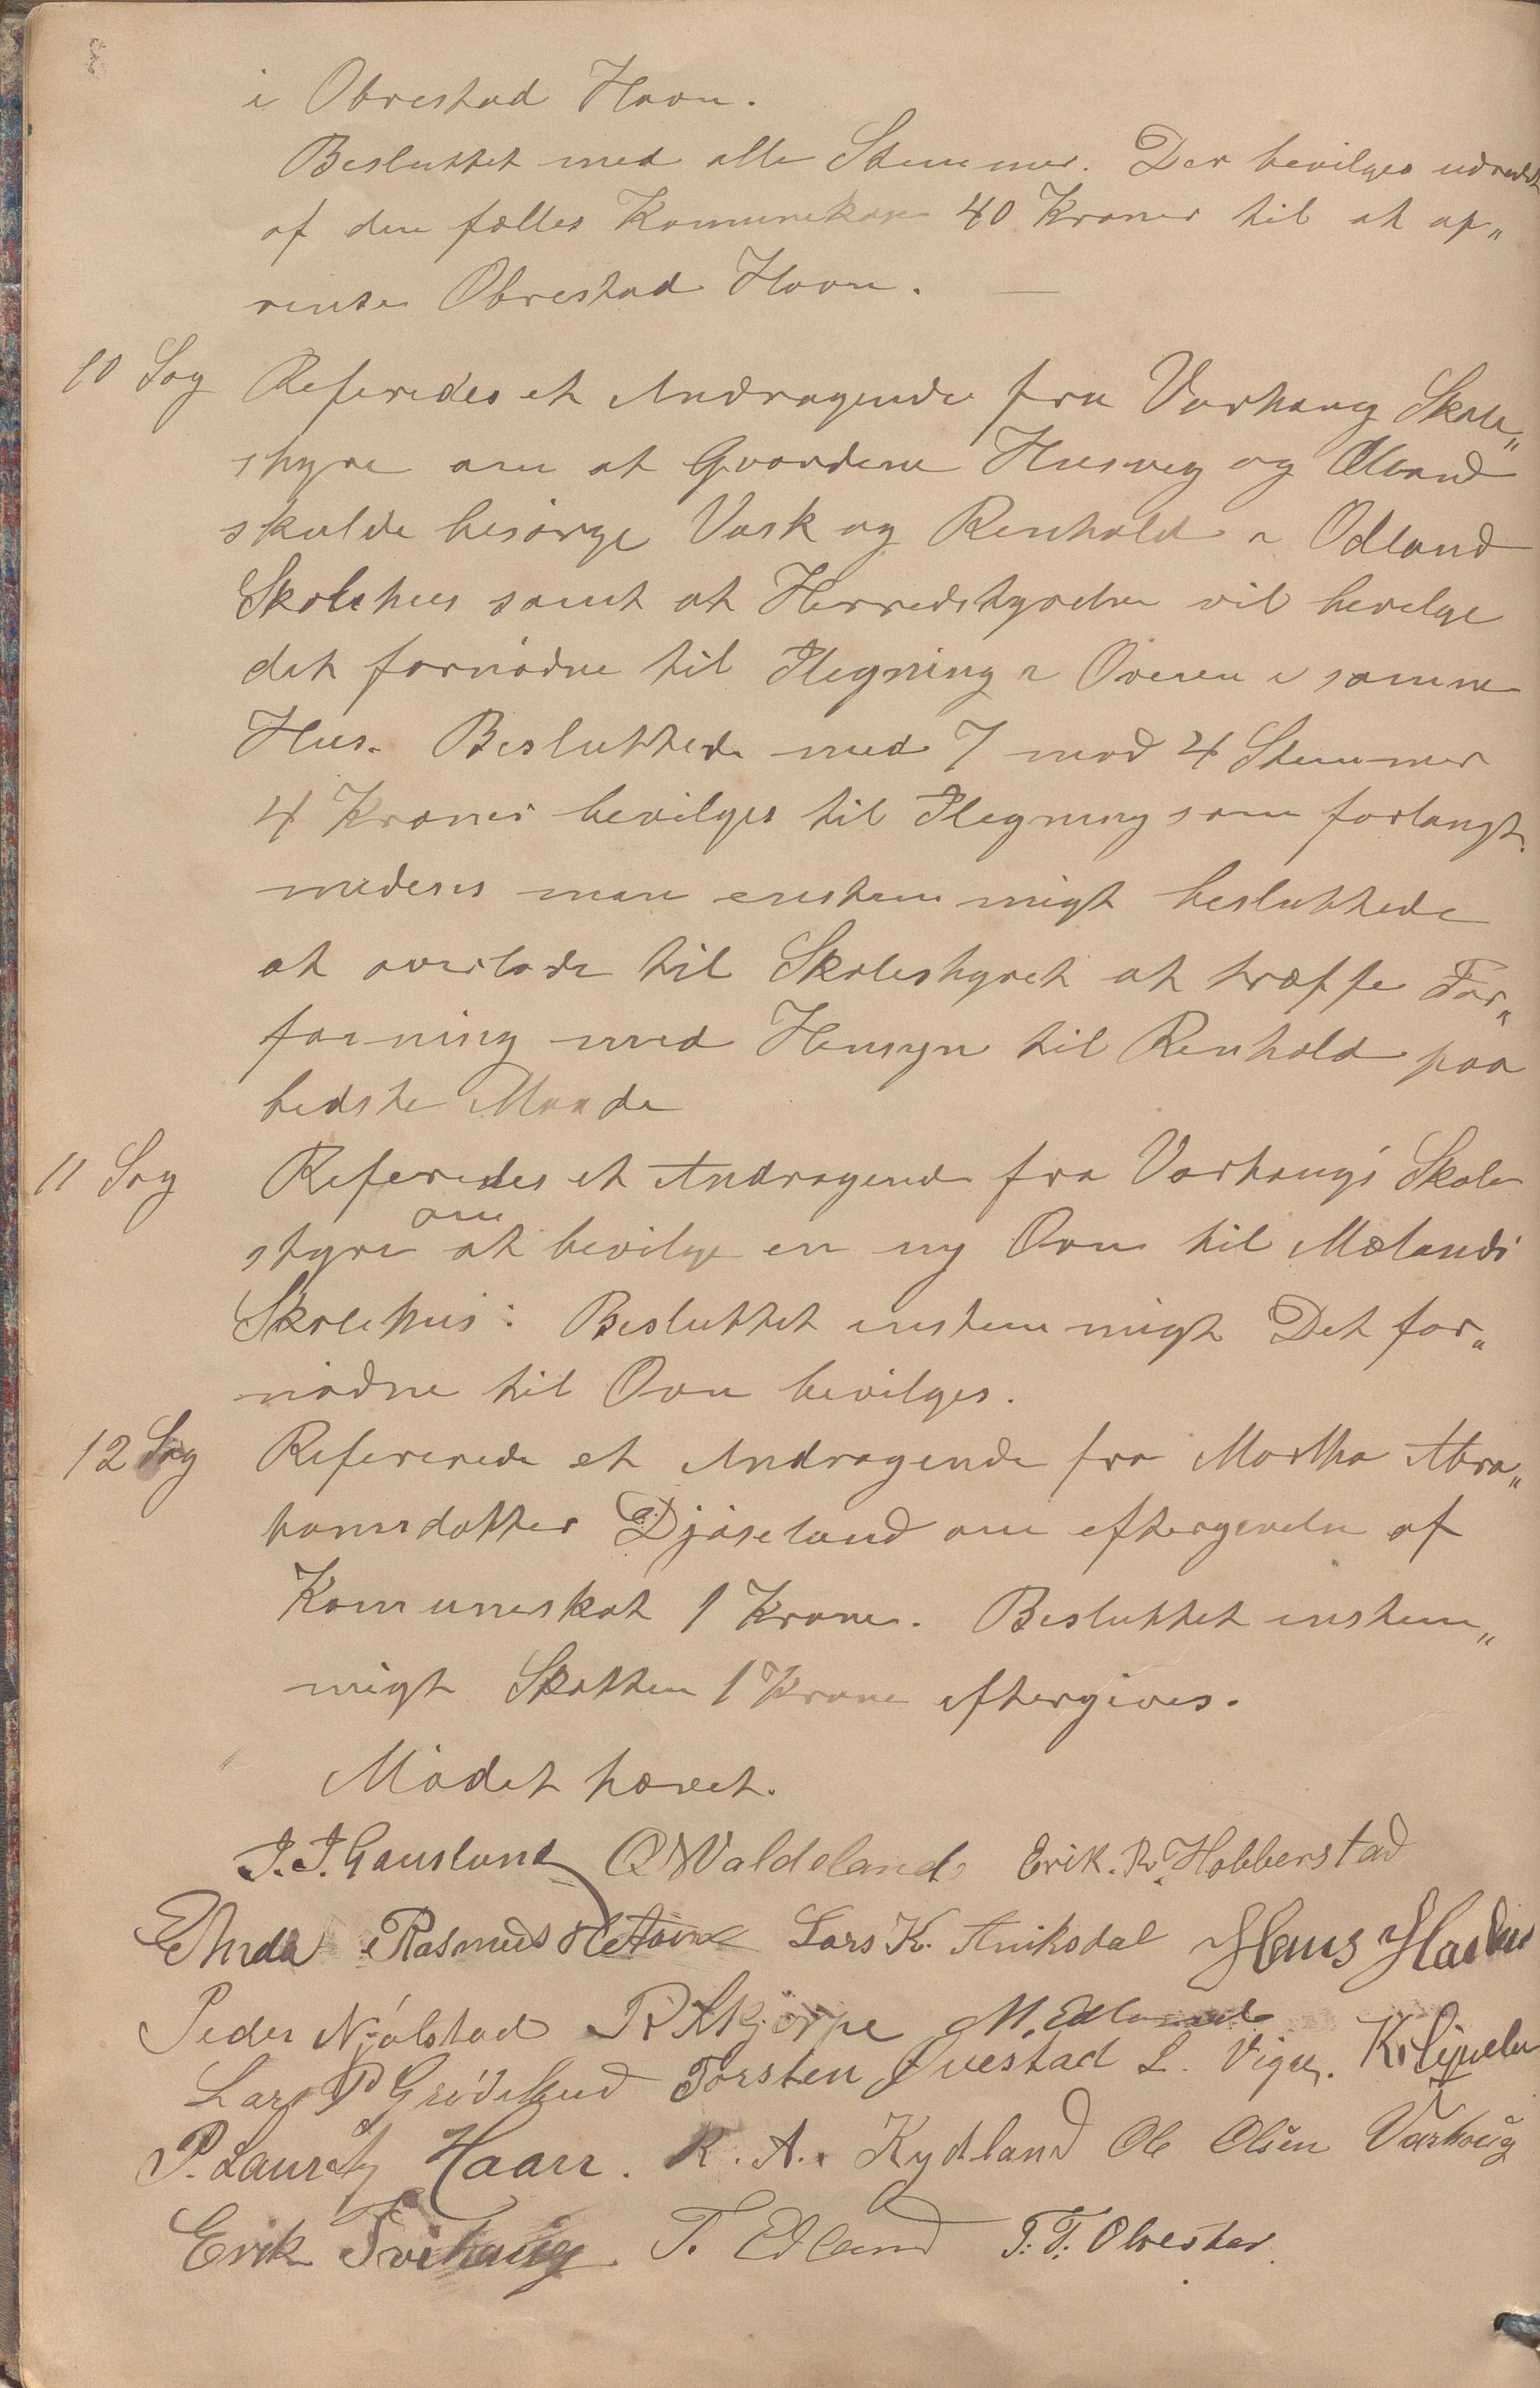 i Obrestad Havn.
Besluttet med alle Stemmer. Der bevilges udredet
af den fælles Komunekase 40 Kroner til at op„
rense Obrestad Havn. —
10 Sag Refereredes et Andragende fra Varhaug Skole„
styre om at Gaardene Husveg og Odland
skulde besörge Vask og Renhold i Odland
Skolehus samt at Herredstyrelsen vil bevilge
det fornödne til Ilegning i Ovenen i samme
Hus. Besluttede med 7 mod 4 Stemmer
4 Kroner bevilges til Ilegning som forlangt.
medens man enstemmigt besluttede
at overlade til Skolestyret at træffe For„
foining med Hensyn til Renhold paa
bedste Maade
11 Sag Referedes et Andragende fra Varhaugs Skole
styre om at bevilge en ny Ovn til Mælands
Skolehus: Besluttet enstemmigt Det for„
nödne til Ovn bevilges.
12 Sag Refererede et Andragende fra Martha Abra„
hamsdatter Djöseland om eftergivelse af
Komuneskat 1 Krone. Besluttet enstem„
migt Skatten 1 Krone eftergives.
Mödet hævet.
J. J. Gausland O Waldeland Erik. R. Hobberstad
Rasmus Lars K. Aniksdal Hans
Peder Njålstad R Skjörpe M. Edland
Lars P Grödeland Torsten Qvestad L. Vigre.
P. Lauritz Haarr. K. A. Kydland Ole Olsen Varhoug
Erik Tvihaug. T. Edland T. T. Obrestad.